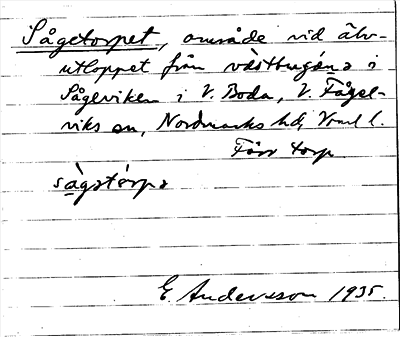 Sågetorpet, område vid älv-
utloppet från västbugəna i
Sågviken i V. Boda, V. Fågel-
viks sn, Nordmarks hd, Vrml l.
Förr torp
sàgətórpə
E. Andersson 1935.